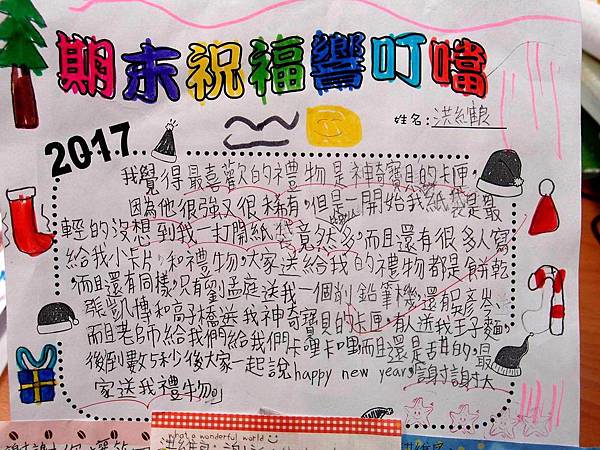 期末祝福響叮噹
姓名：洪
2017
我覺得最喜歡的禮物是神奇寶貝的卡匣，
因為他很強又很稀有，但是一開始我紙袋是最
輕的沒想到我一打開紙袋竟然多，而且還有很多人寫
給我小卡片，和禮物，大家送給我的禮物都是餅乾
，而且還有同樣，只有劉孟庭送我一個削鉛筆機，還有吳彥岑、
張凱博和高子橋送我神奇寶貝的卡匣，有人送我王子麵，
而且老師給我們給我們卡哩卡哩而且還是甜的，最
後倒數5秒後大家一起說happy new year，謝謝大
家送我禮物。
what a wonderful world